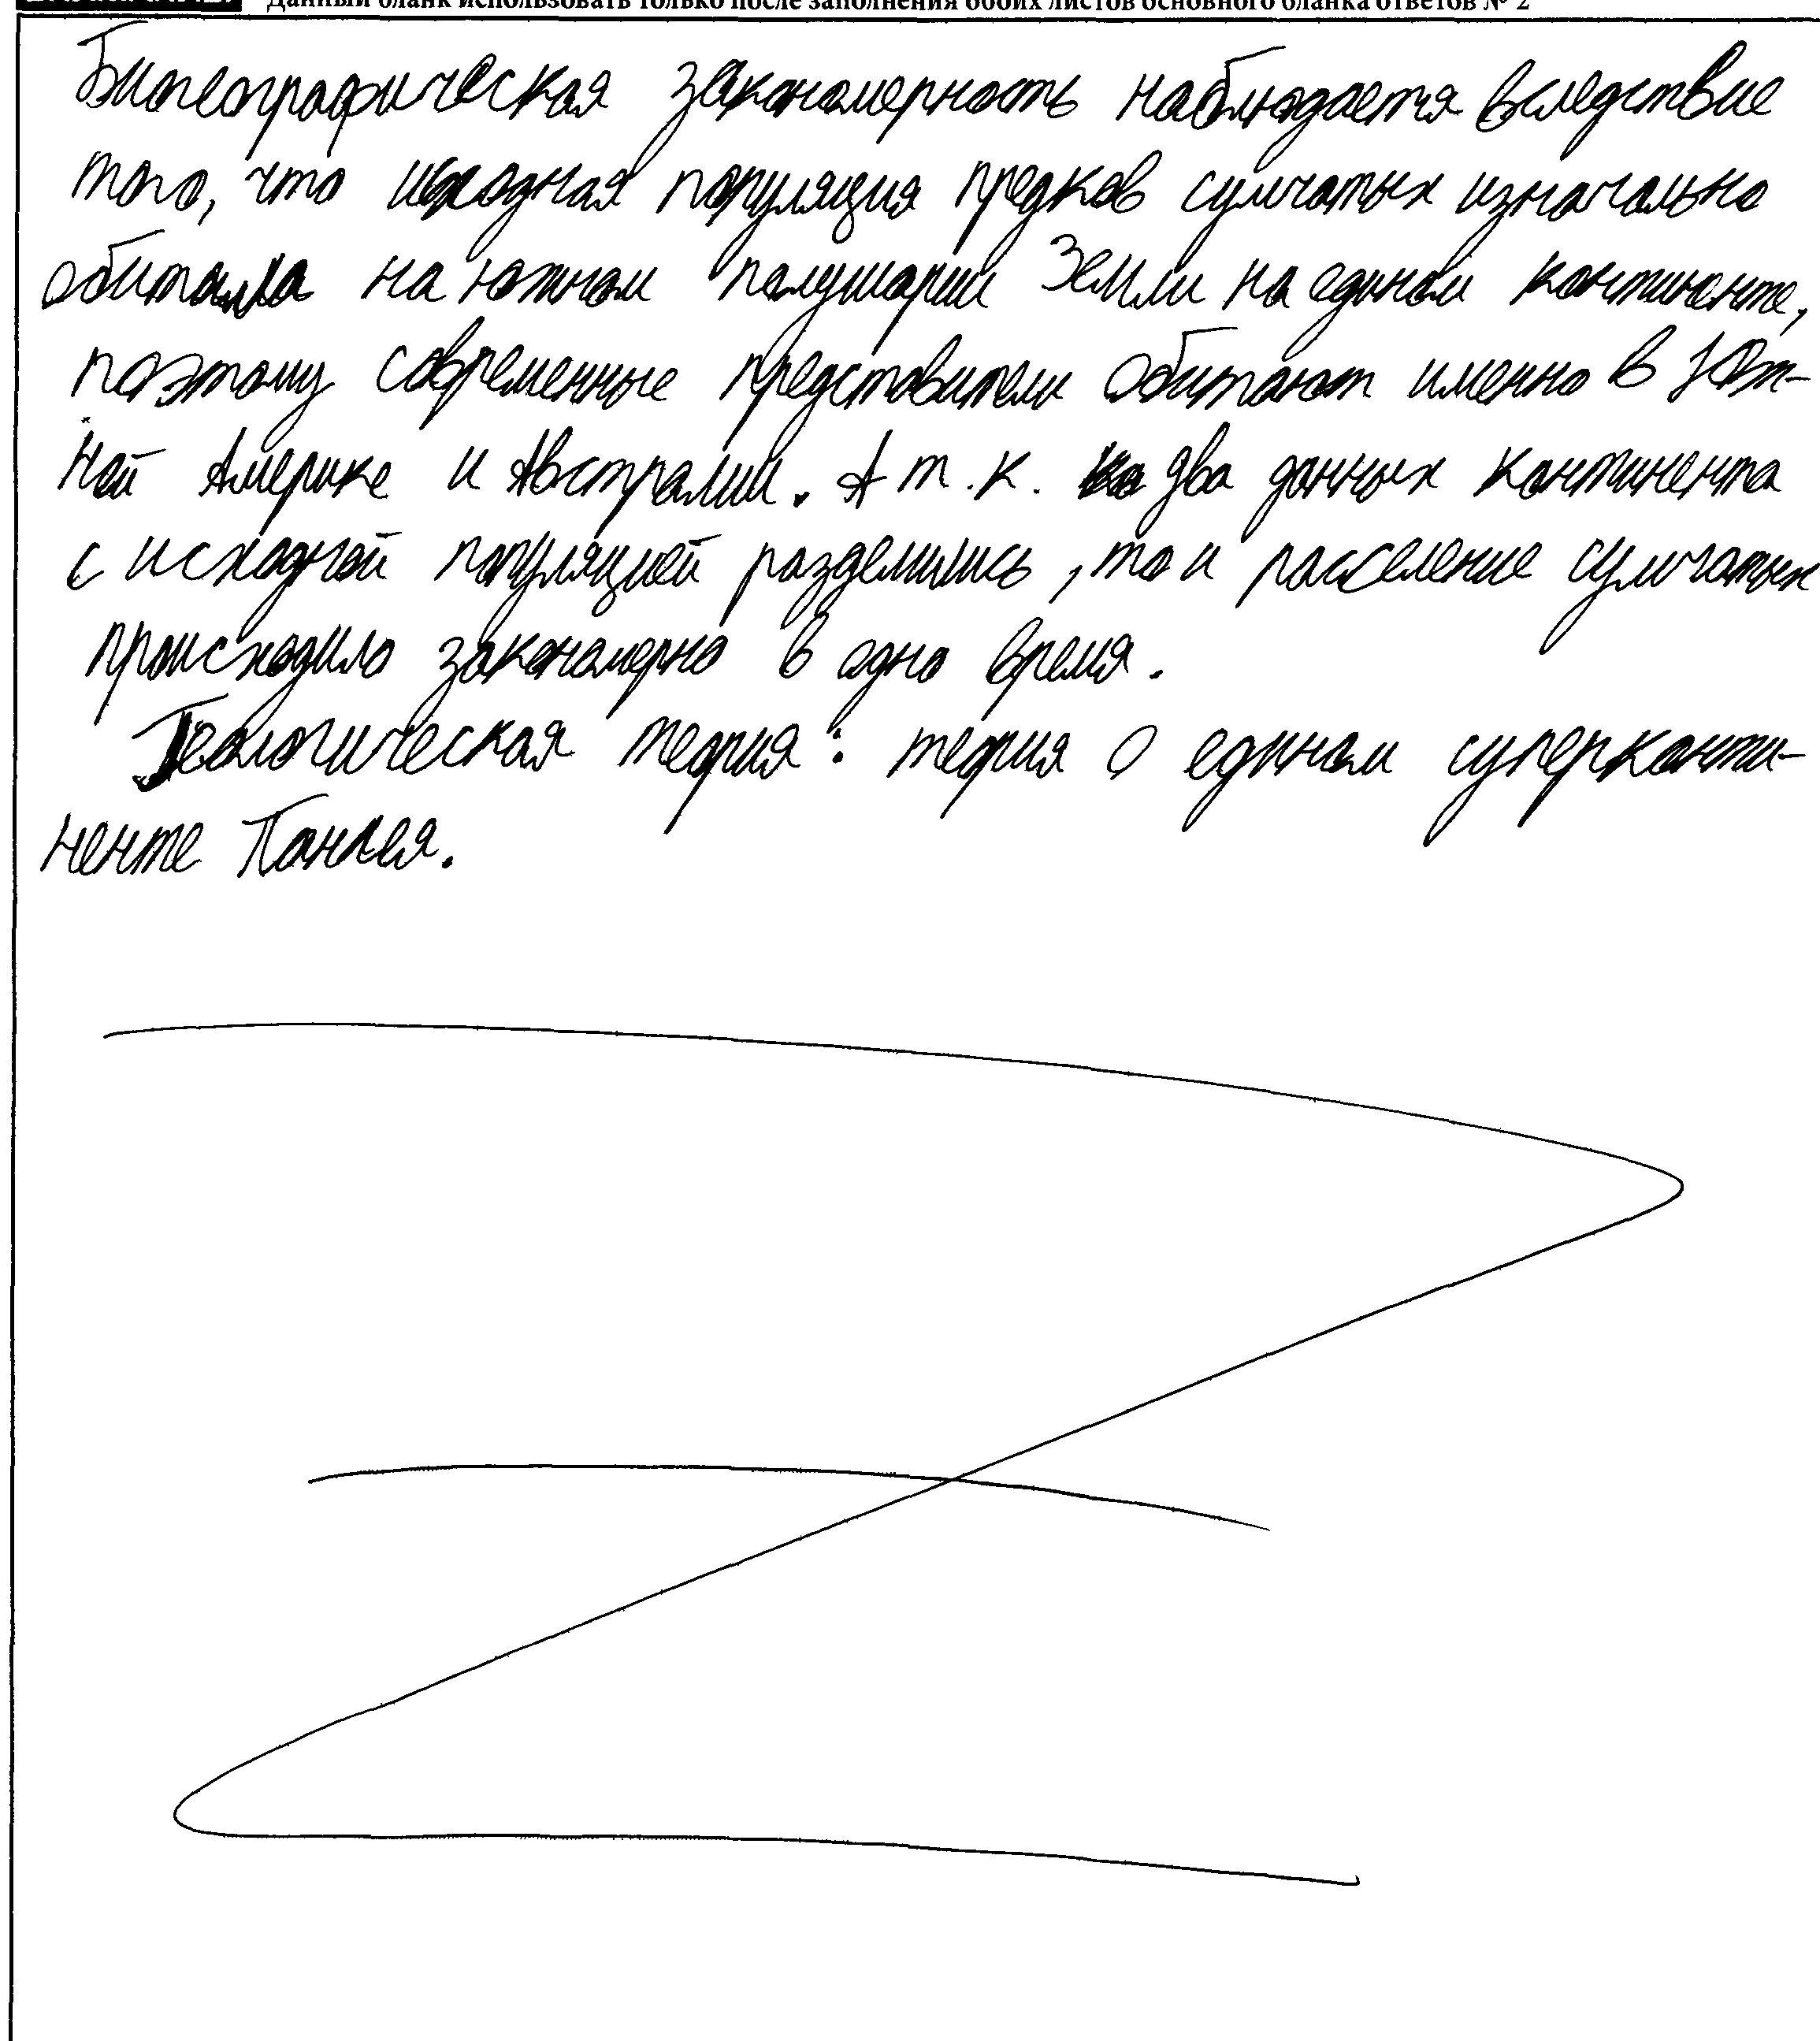 Данный бланк использовать только после заполнения обоих листов основного бланка ответов № 2
Биогеографическая закономерность наблюдается вследствие
того, что исходная популяция предков сумчатых изначально
обитала на южном полушарии Земли на едином континенте,
поэтому современные представители обитают именно в Юж-
ной Америке и Австралии. А т.к. два данных континента
с исходной популяцией разделились, то и расселение сумчатых
происходило закономерно в одно время.
Геологическая теория: теория о едином суперконти-
ненте Пангея.